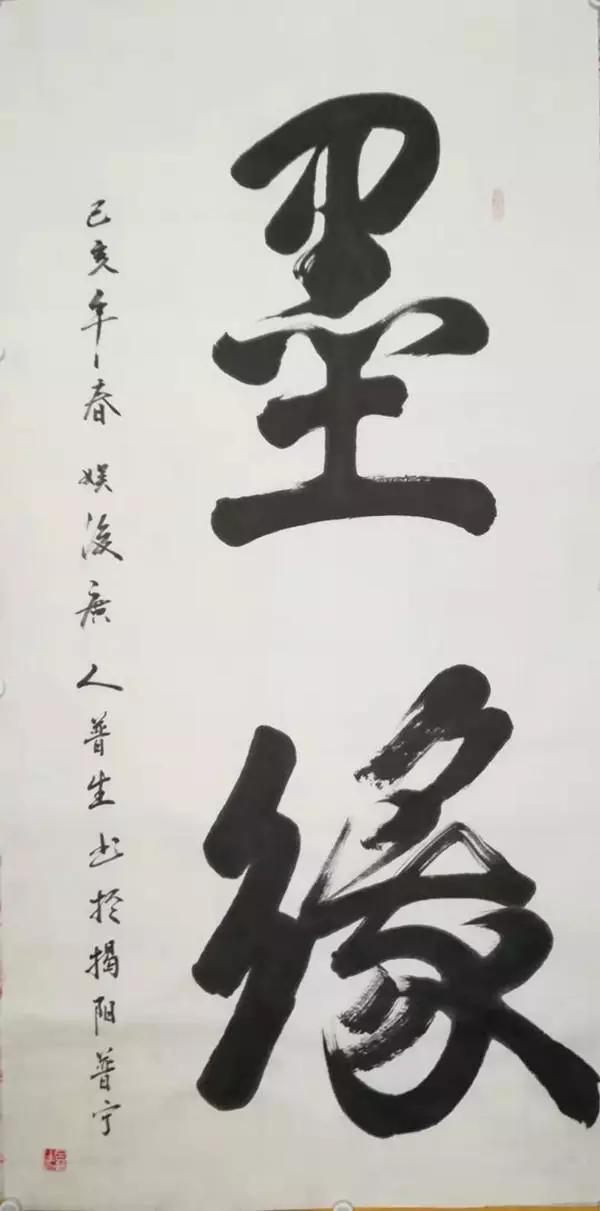 墨缘
己亥年春 娱后广人普生书于揭阳普宁